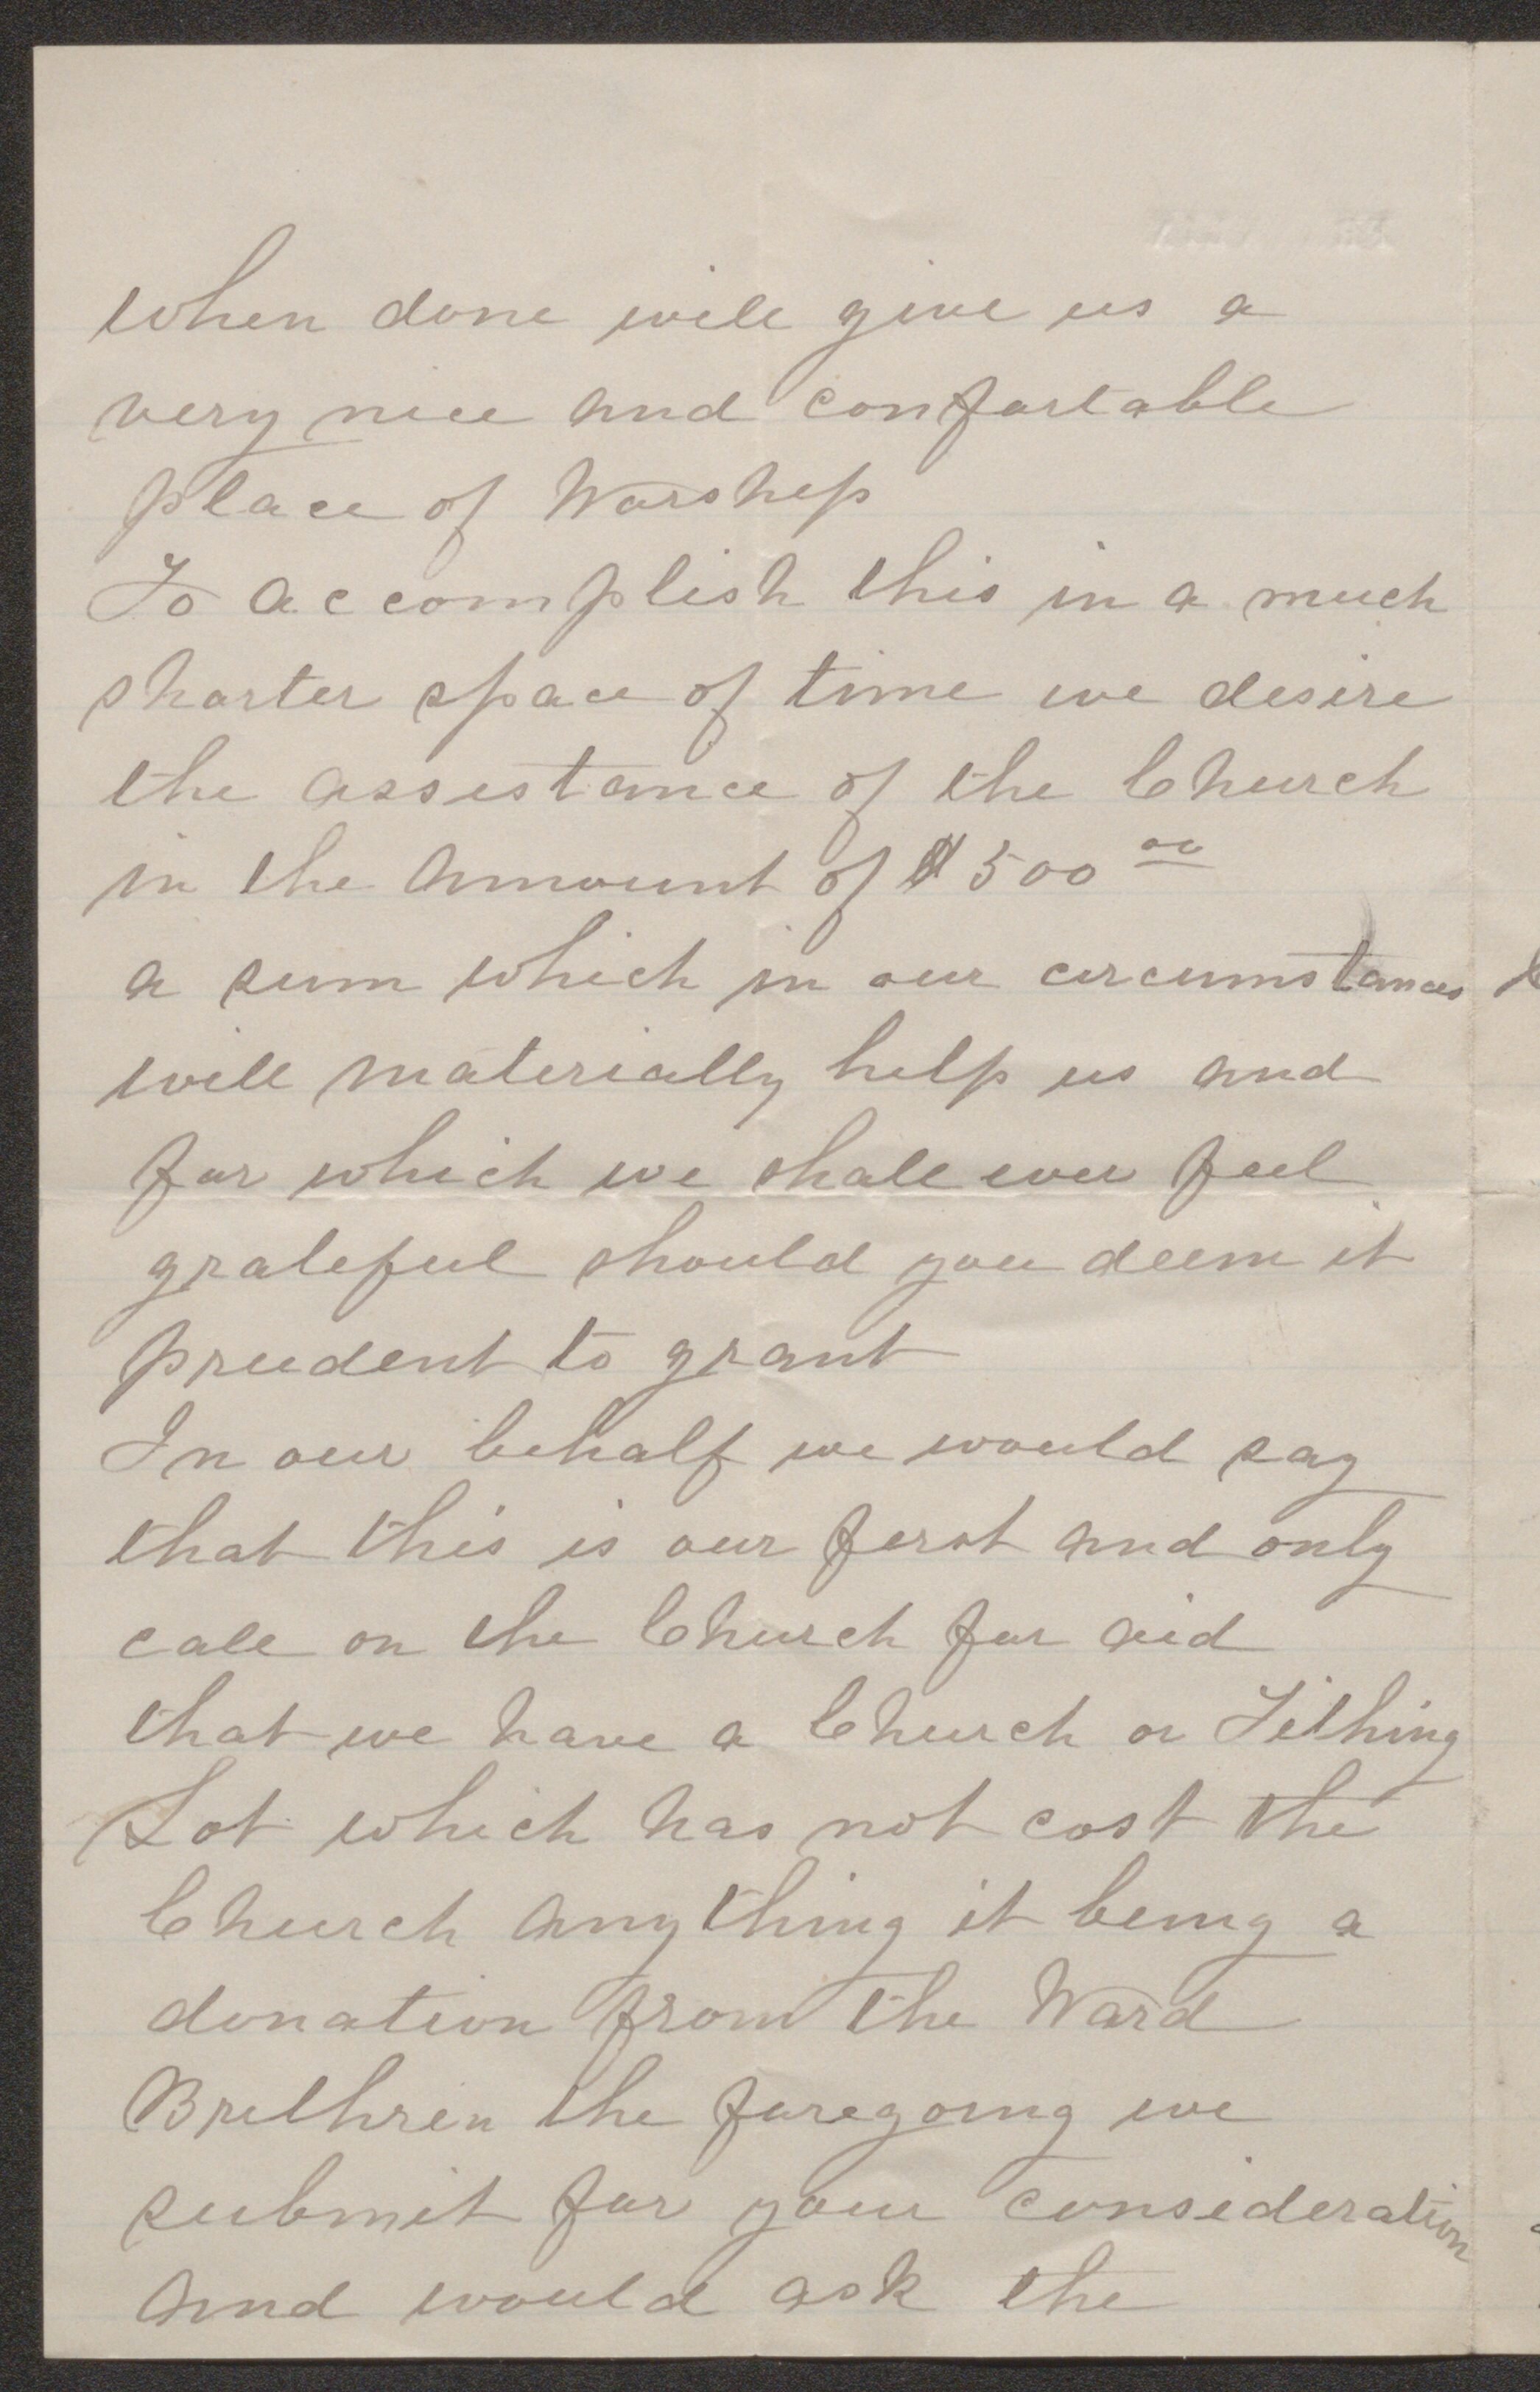 when done will give us a
very nice and confortable
place of Worship
To accomplish this in a much
shorter space of time we desire
the assistance of the Church
in the amount of $500 00
a sum which in our circumstances
will materially help us and
for which we shall ever feel
grateful should you deem it
prudent to grant
In our behalf we would say
that this is our first and only
call on the Church for aid
that we have a Church or Tithing
Lot which has not cost the
Church any thing it being a
donation from the Ward
Brethren the foregoing we
submit for your consideration
and would ask the